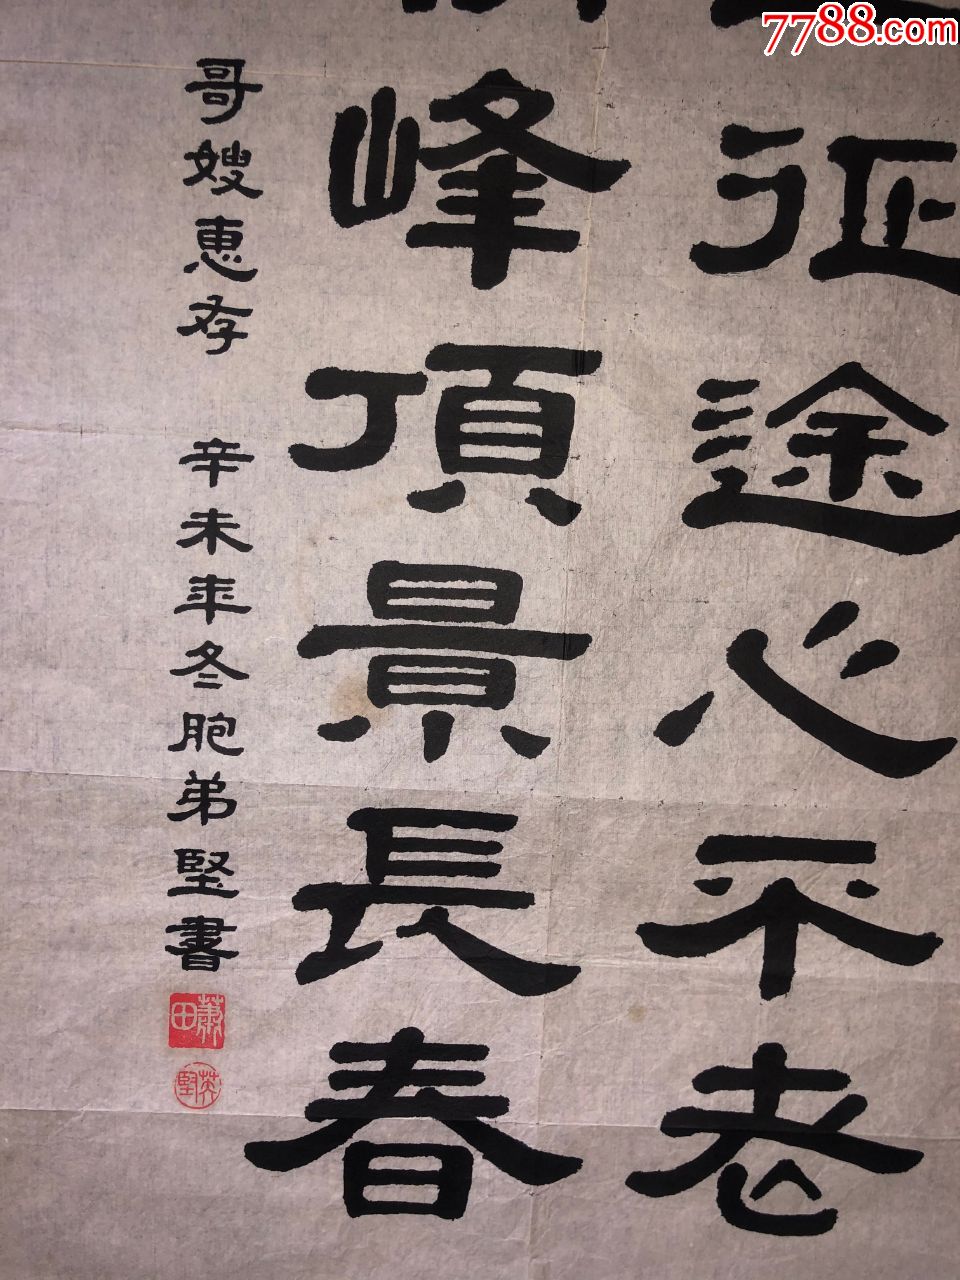 征途心不老
峰頂景長春
哥嫂惠存 辛未年冬胞弟堅書
蕭田
英堅
7788.com